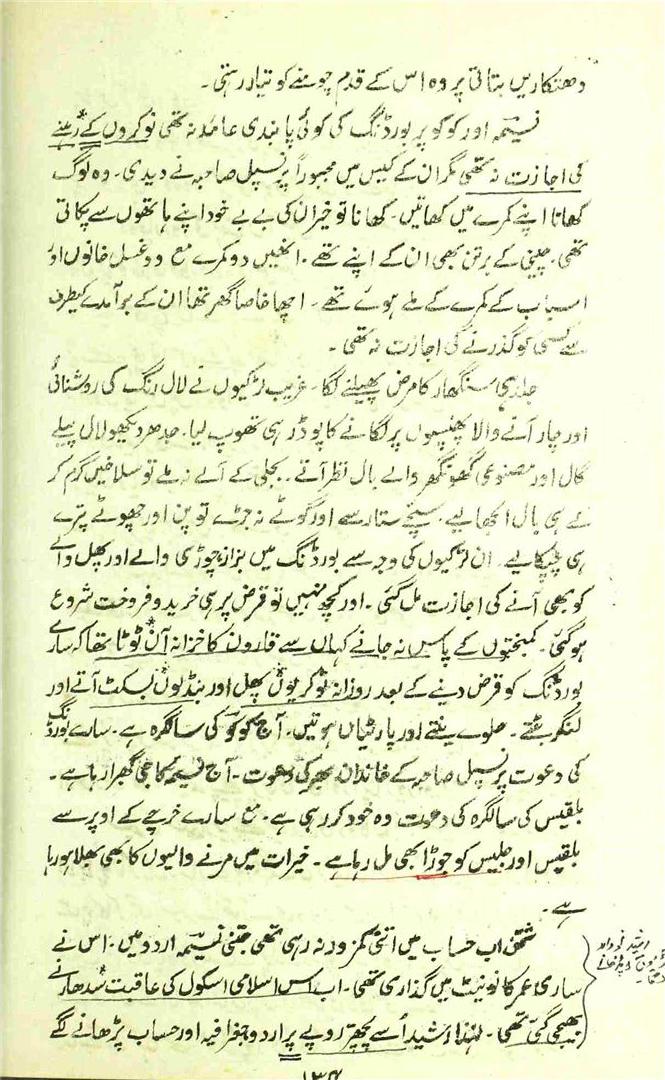 دھتکاریں بتاتی پر وہ اس کے قدم چومنے کو تیار رہتی۔
نسیمہ اور کوکو پر بورڈنگ کی کوئی پابندی عائد نہ تھی نوکروں کے رہنے
کی اجازت نہ تھی مگر ان کے کیس میں مجبوراً پرنسپل صاحبہ نے دیدی۔ وہ لوگ
کھانا اپنے کمرے میں کھاتیں۔ کھانا تو خیر ان کی بے بے خود اپنے ہاتھوں سے پکاتی
تھی۔ چینی کے برتن بھی ان کے اپنے تھے۔ انھیں دو کمرے مع دو غسل خانوں اور
اسباب کے کمرے کے ملے ہوئے تھے۔ اچھا خاصا گھر تھا ان کے برآمدے کیطرف
سے کسی کو گذرنے کی اجازت نہ تھی۔
جلد ہی سنگھار کا مرض پھیلنے لگا۔ غریب لڑکیوں نے لال رنگ کی روشنائی
اور چار آنے والا پھنسیوں پر لگانے کا پوڈر ہی تھوپ لیا۔ جدھر دیکھو لال پیلے
گال اور مصنوعی گھونگھر والے بال نظر آتے۔ بجلی کے آلے نہ ملے تو سلاخیں گرم کر
کے ہی بال الجھا لیے۔ سچے ستارے اور گوٹے نہ جڑے تو پن اور جھوٹے پترے
ہی چپکا لیے۔ ان لڑکیوں کی وجہ سے بورڈنگ میں بزاز، چوڑی والے اور پھل والے
کو بھی آنے کی اجازت مل گئی۔ اور کچھ نہیں تو قرض پر ہی خرید و فروخت شروع
ہو گئی۔ کمبختوں کے پاس نہ جانے کہاں سے قارون کا خزانہ آن ٹوٹا تھا کہ سارے
بورڈنگ کو قرض دینے کے بعد روزانہ ٹوکریوں پھل اور بنڈلوں بسکٹ آتے اور
لنگر بٹتے۔ حلوے بنتے اور پارٹیاں ہوتیں۔ آج کوکو کی سالگرہ ہے۔ سارے بورڈنگ
کی دعوت پرنسپل صاحبہ کے خاندان بھر کی دعوت۔ آج نسیمہ کا جی گھبرا رہا ہے۔
بلقیس کی سالگرہ کی دعوت وہ خود کر رہی ہے۔ مع سارے خرچے کے اوپر سے
بلقیس اور جلیس کو جوڑا بھی مل رہا ہے۔ خیرات میں مرنے والیوں کا بھی بھلا ہو رہا
ہے۔
شمن اب حساب میں اتنی کمزور نہ رہی تھی جتنی نسیمہ اردو میں۔ اس نے
ساری عمر کانونیٹ میں گذاری تھی۔ اب اس اسلامی اسکول کی عاقبت سدھارنے
بھیجی گئی تھی۔ لہٰذا رشید اسے پچھتر روپے پر اردو جغرافیہ اور حساب پڑھانے لگے
۱۳۴